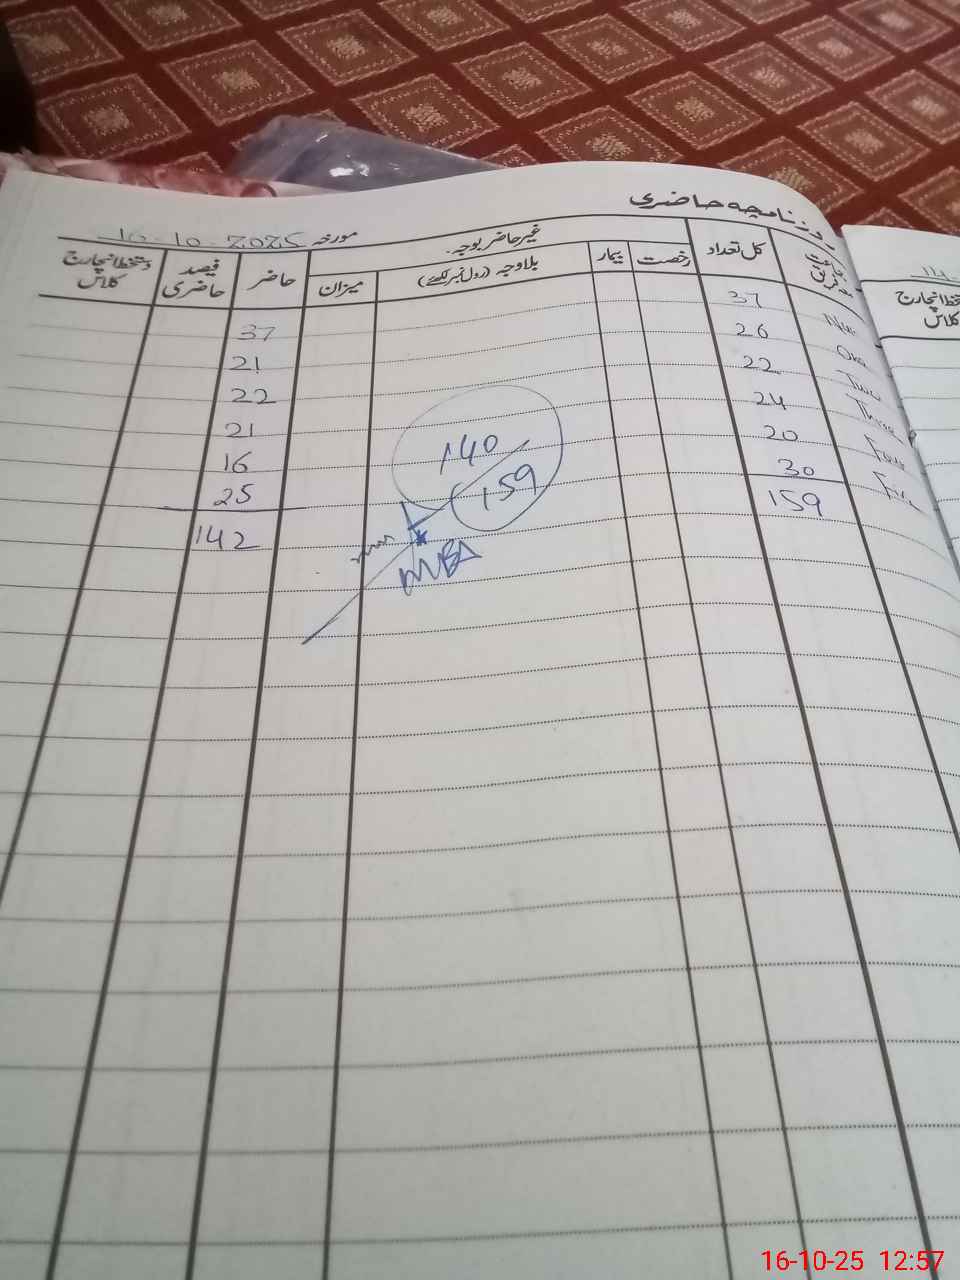 روزنامچہ حاضری
مورخہ 16-10-2025
جماعت کل تعداد غیر حاضر بوجہ حاضر فیصد حاضری دستخط انچارج کلاس
رخصت بیمار بلاوجہ (رول نمبر لکھئے) میزان
Nur 37 37
One 26 21
Two 22 22
Three 24 21
Four 20 16
Five 30 25
159 142
140
159
دستخط انچارج
کلاس
16-10-25 12:57